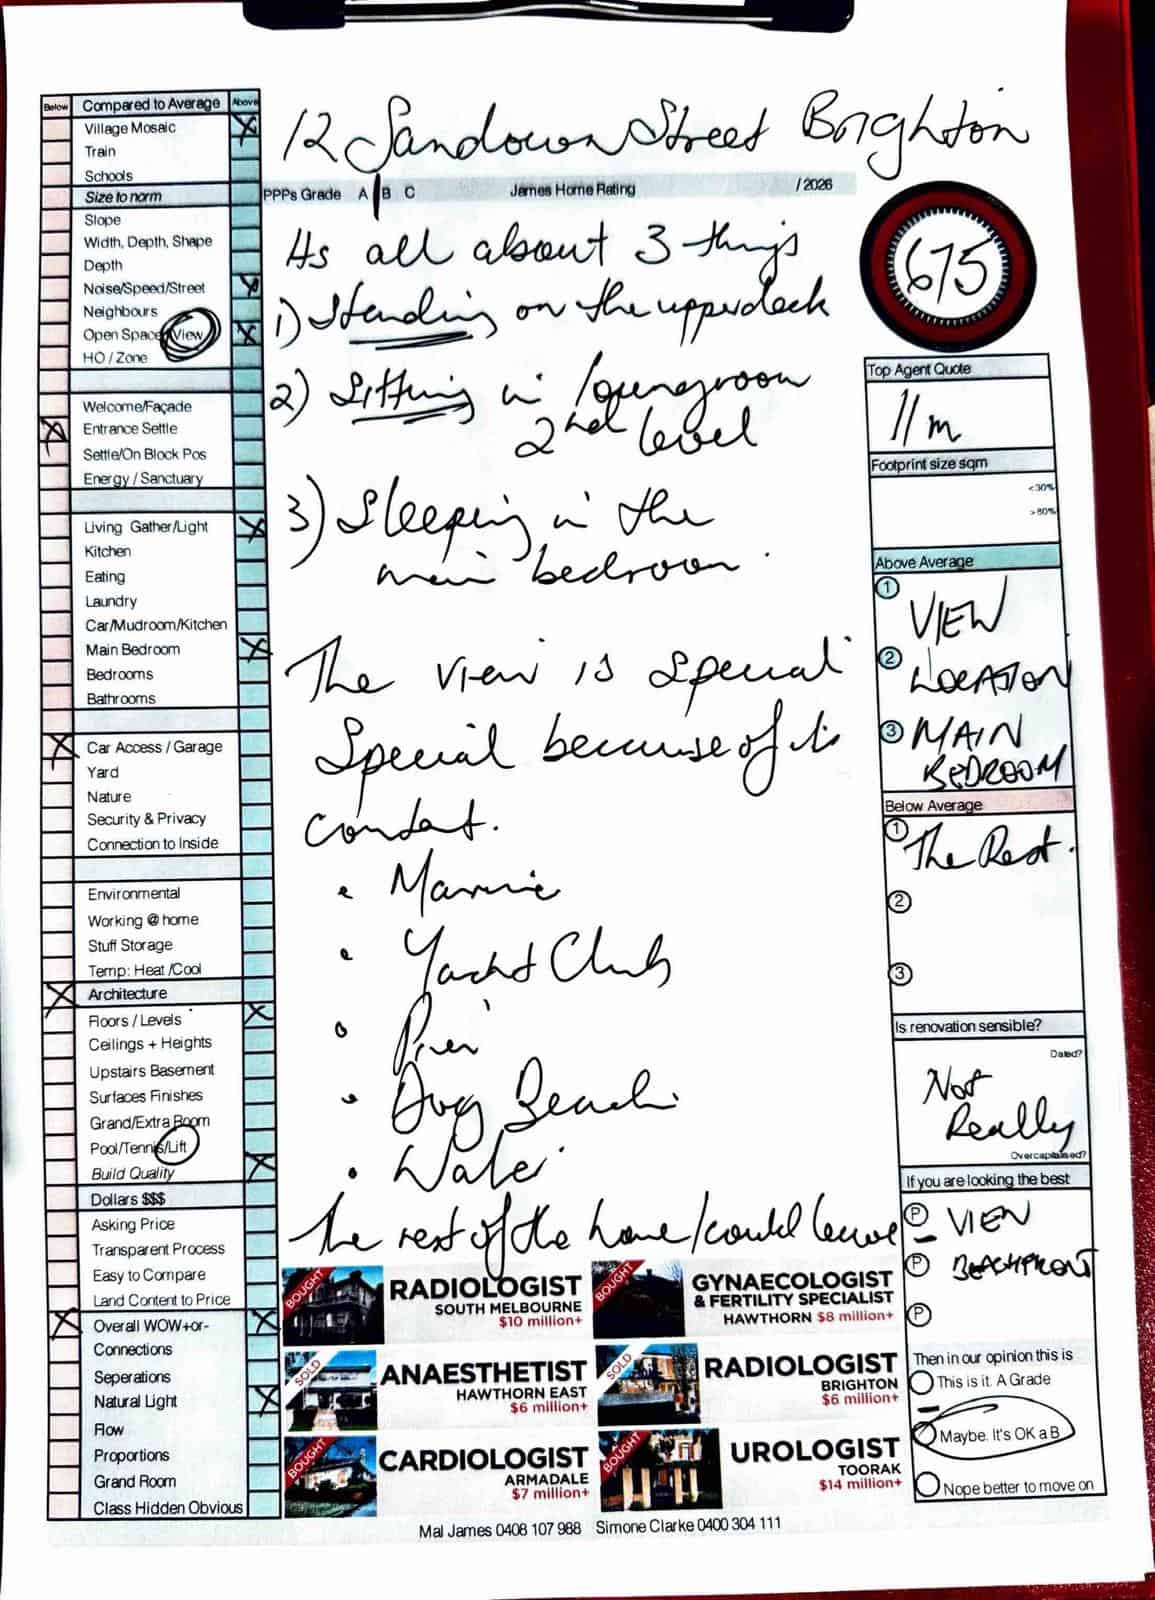 Below Compared to Average Above
Village Mosaic
Train
Schools
Size to norm
Slope
Width, Depth, Shape
Depth
Noise/Speed/Street
Neighbours
Open Space/View
HO / Zone
Welcome/Façade
Entrance Settle
Settle/On Block Pos
Energy / Sanctuary
Living Gather/Light
Kitchen
Eating
Laundry
Car/Mudroom/Kitchen
Main Bedroom
Bedrooms
Bathrooms
Car Access / Garage
Yard
Nature
Security & Privacy
Connection to Inside
Environmental
Working @ home
Stuff Storage
Temp: Heat /Cool
Architecture
Floors / Levels
Ceilings + Heights
Upstairs Basement
Surfaces Finishes
Grand/Extra Room
Pool/Tennis/Lift
Build Quality
Dollars $$$
Asking Price
Transparent Process
Easy to Compare
Land Content to Price
Overall WOW+or-
Connections
Seperations
Natural Light
Flow
Proportions
Grand Room
Class Hidden Obvious
12 Sandown Street Brighton
PPPs Grade A B C James Home Rating / 2026
Its all about 3 things
1) Standing on the upperdeck
2) Sitting in loungroom
2nd level
3) Sleeping in the
main bedroom.
The view is special
Special because of its
• Marine
• Yacht Club
• Pier
• Dog Beach
The rest of the home/could leave
675
Top Agent Quote
11m
Footprint size sqm
<30%
>80%
Above Average
1 VIEW
2 LOCATION
3 MAIN
BEDROOM
Below Average
1 The Rest.
2
3
Is renovation sensible?
Dated?
Not
Really
Overcapitalised?
If you are looking the best
P VIEW
P BEACHFRONT
P
Then in our opinion this is
This is it. A Grade
Maybe. It's OK a B
Nope better to move on
BOUGHT
RADIOLOGIST
SOUTH MELBOURNE
$10 million+
BOUGHT
GYNAECOLOGIST
& FERTILITY SPECIALIST
HAWTHORN $8 million+
SOLD
ANAESTHETIST
HAWTHORN EAST
$6 million+
SOLD
RADIOLOGIST
BRIGHTON
$6 million+
BOUGHT
CARDIOLOGIST
ARMADALE
$7 million+
BOUGHT
UROLOGIST
TOORAK
$14 million+
Mal James 0408 107 988 Simone Clarke 0400 304 111